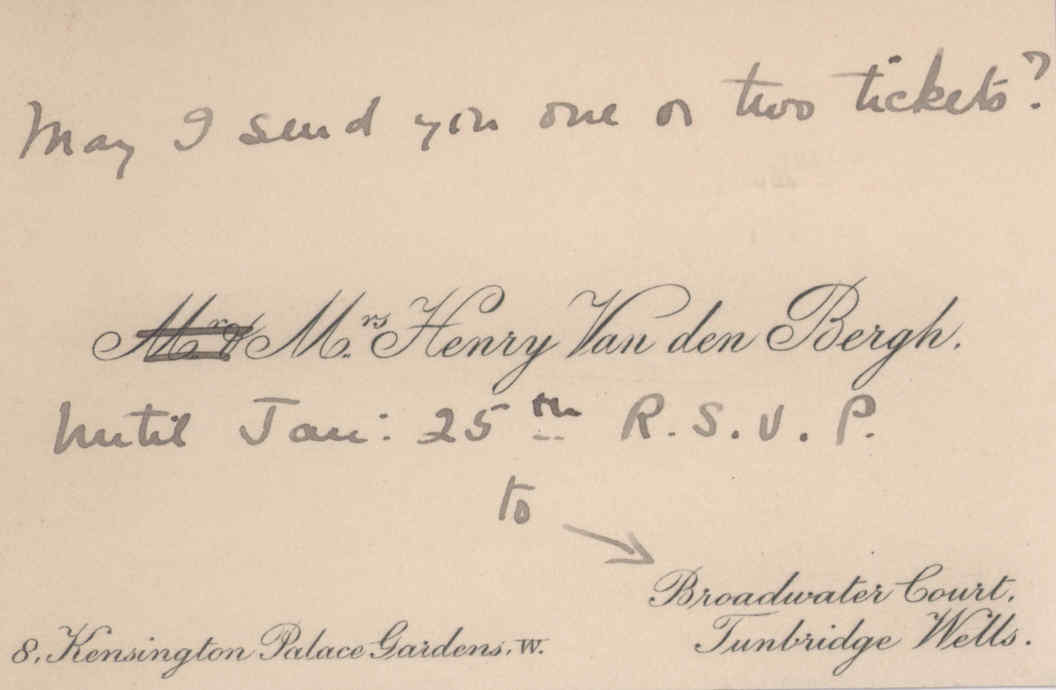 May I send you one or two tickets?
Mr. & Mrs. Henry Van den Bergh.
Until Jan: 25th R.S.V.P.
to
Broadwater Court,
Tunbridge Wells.
8, Kensington Palace Gardens, W.